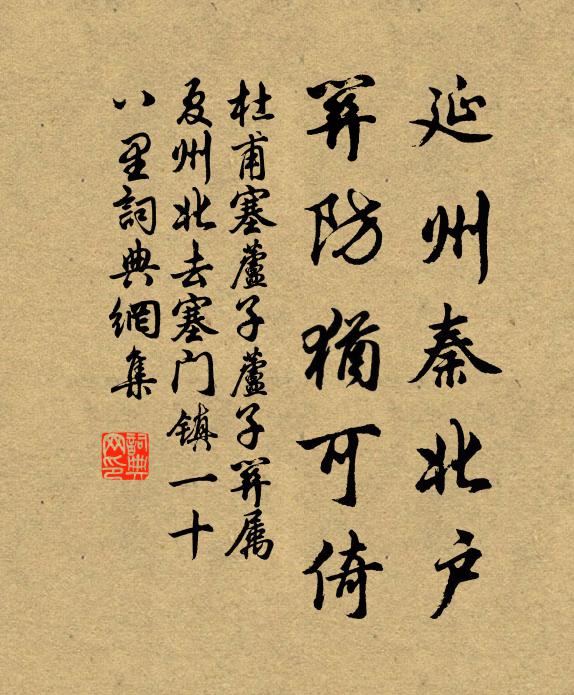 延州秦北户
關防猶可倚
杜甫塞蘆子蘆子關属
夏州北去塞门镇一十
八里詞典網集
詞典
网印